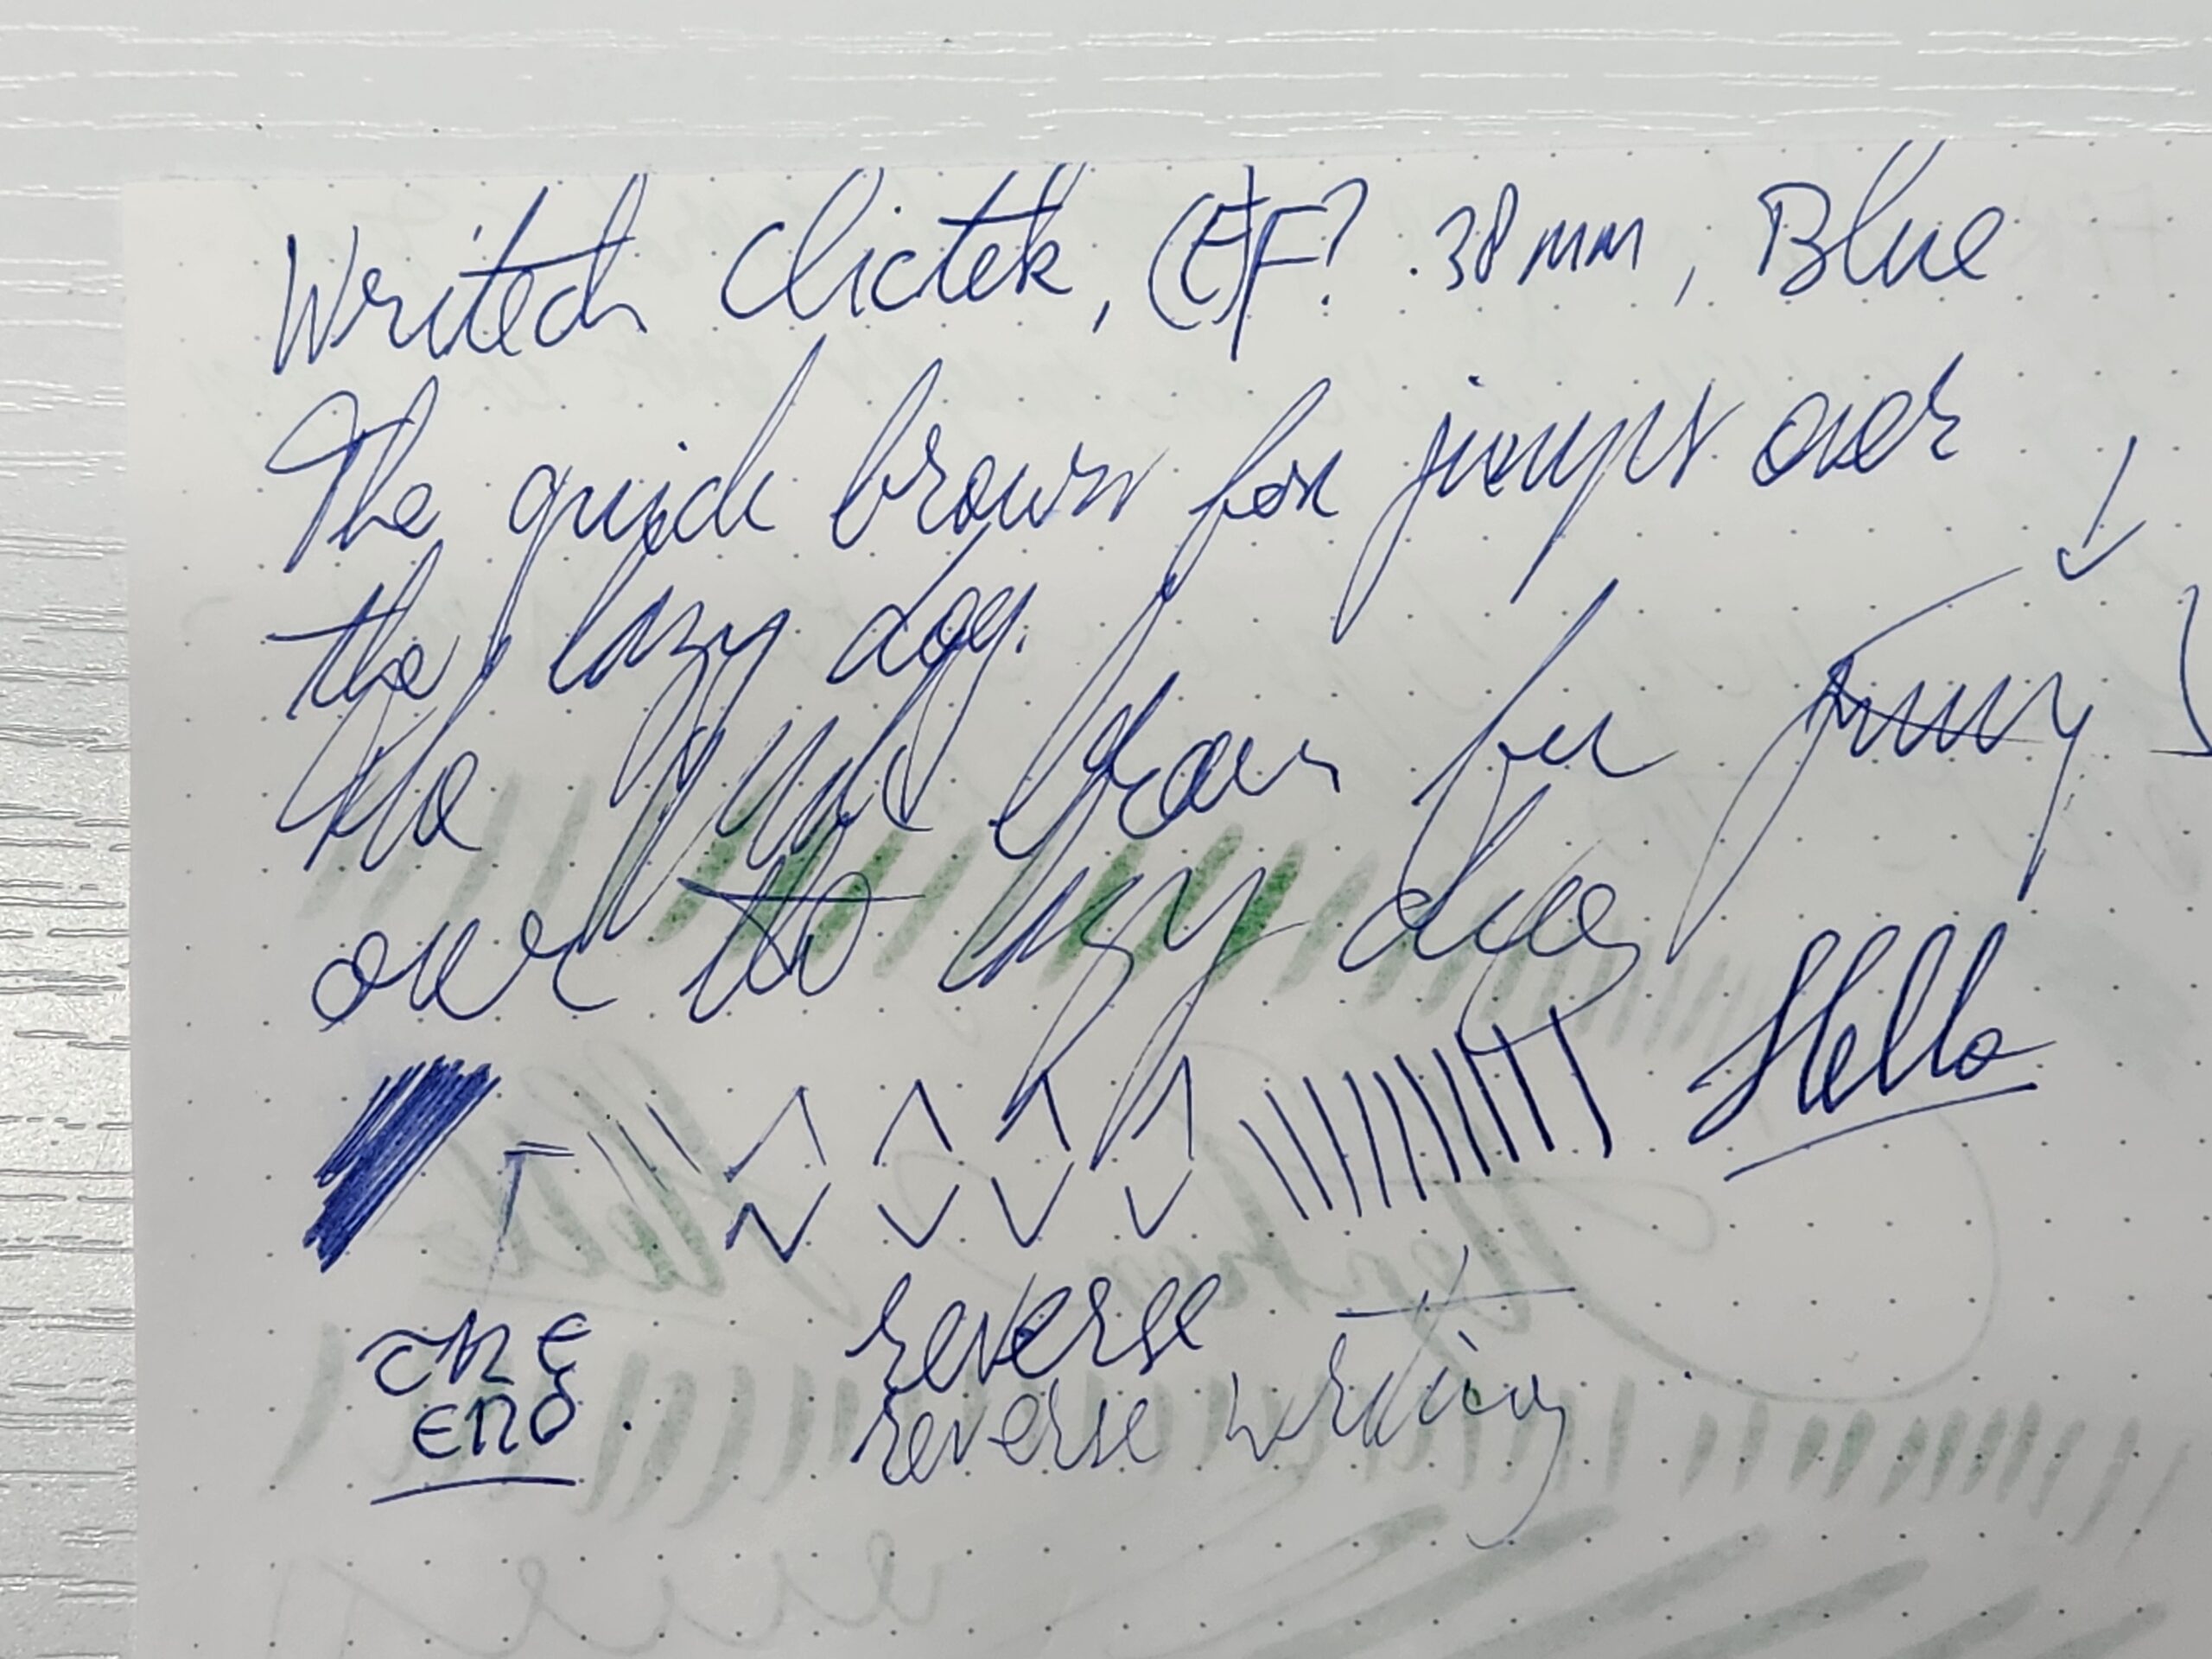 Writech Clictek, (E)F? .38mm, Blue
The quick brown fox jumps over
the lazy dog.
the quick brown fox jumps
over the lazy dog
Hello
The
End.
reverse
reverse writing